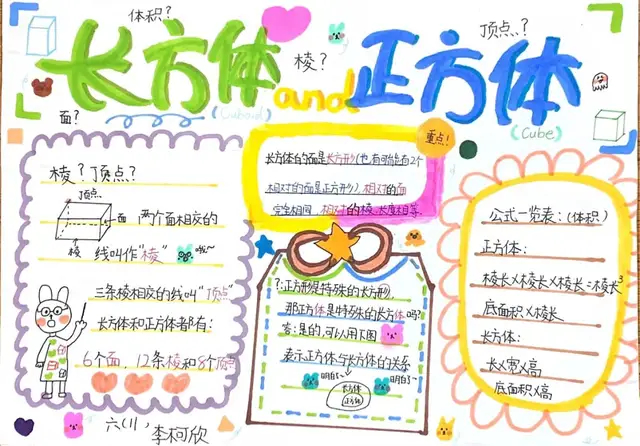 体积?
顶点..?
棱?
面?
长方体and正方体
(Cuboid)
(Cube)
重点!
棱?顶点?
顶点
面
棱
两个面相交的
线叫作"棱"
啦~
三条棱相交的线叫"顶点"
长方体和正方体都有:
6个面,12条棱和8个顶点
长方体的面是长方形(也有可能有2个
相对的面是正方形),相对的面
完全相同,相对的棱长度相等.
?:正方形是特殊的长方形,
那正方体是特殊的长方体吗?
答:是的,可以用下图
表示正方体与长方体的关系
明白~
明白~
长方体
正方体
公式一览表:(体积)
正方体:
棱长×棱长×棱长=棱长³
底面积×棱长
长方体:
长×宽×高
底面积×高
六(1),
李柯欣